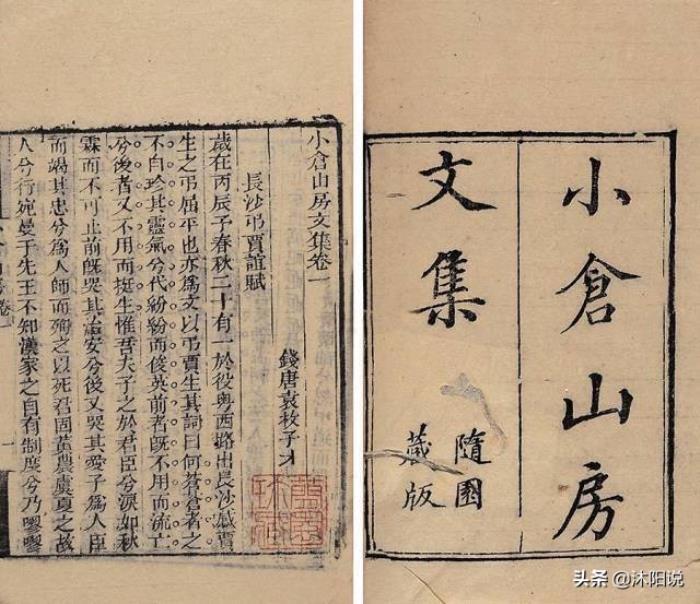 小倉山房
文集
隨園
藏版
小倉山房文集卷一
錢唐袁枚子才
長沙弔賈誼賦
歲在丙辰予春秋二十有一於役粵西路出長沙感賈
生之弔屈平也亦爲文以弔賈生其詞曰何蒼蒼之
不自珍其靈氣兮代紛紛而俊英前者旣不用而流亡
兮後者又不用而挺生惟吾夫子之於君臣兮淚如秋
霖而不可止前旣哭其治安兮後又哭其愛子爲人臣
而竭其忠兮爲人師而殉之以死君固黃農虞夏之故
人兮行宛曼于先王不知漢家之自有制度兮乃嘐嘐
头条 @沐阳说